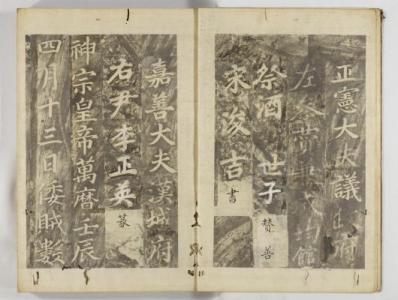 正憲大夫議政府
左參贊兼成均館
祭酒 世子 贊善
宋浚吉 書
嘉善大夫漢城府
右尹李正英 篆
神宗皇帝萬曆壬辰
四月十三日倭賊數